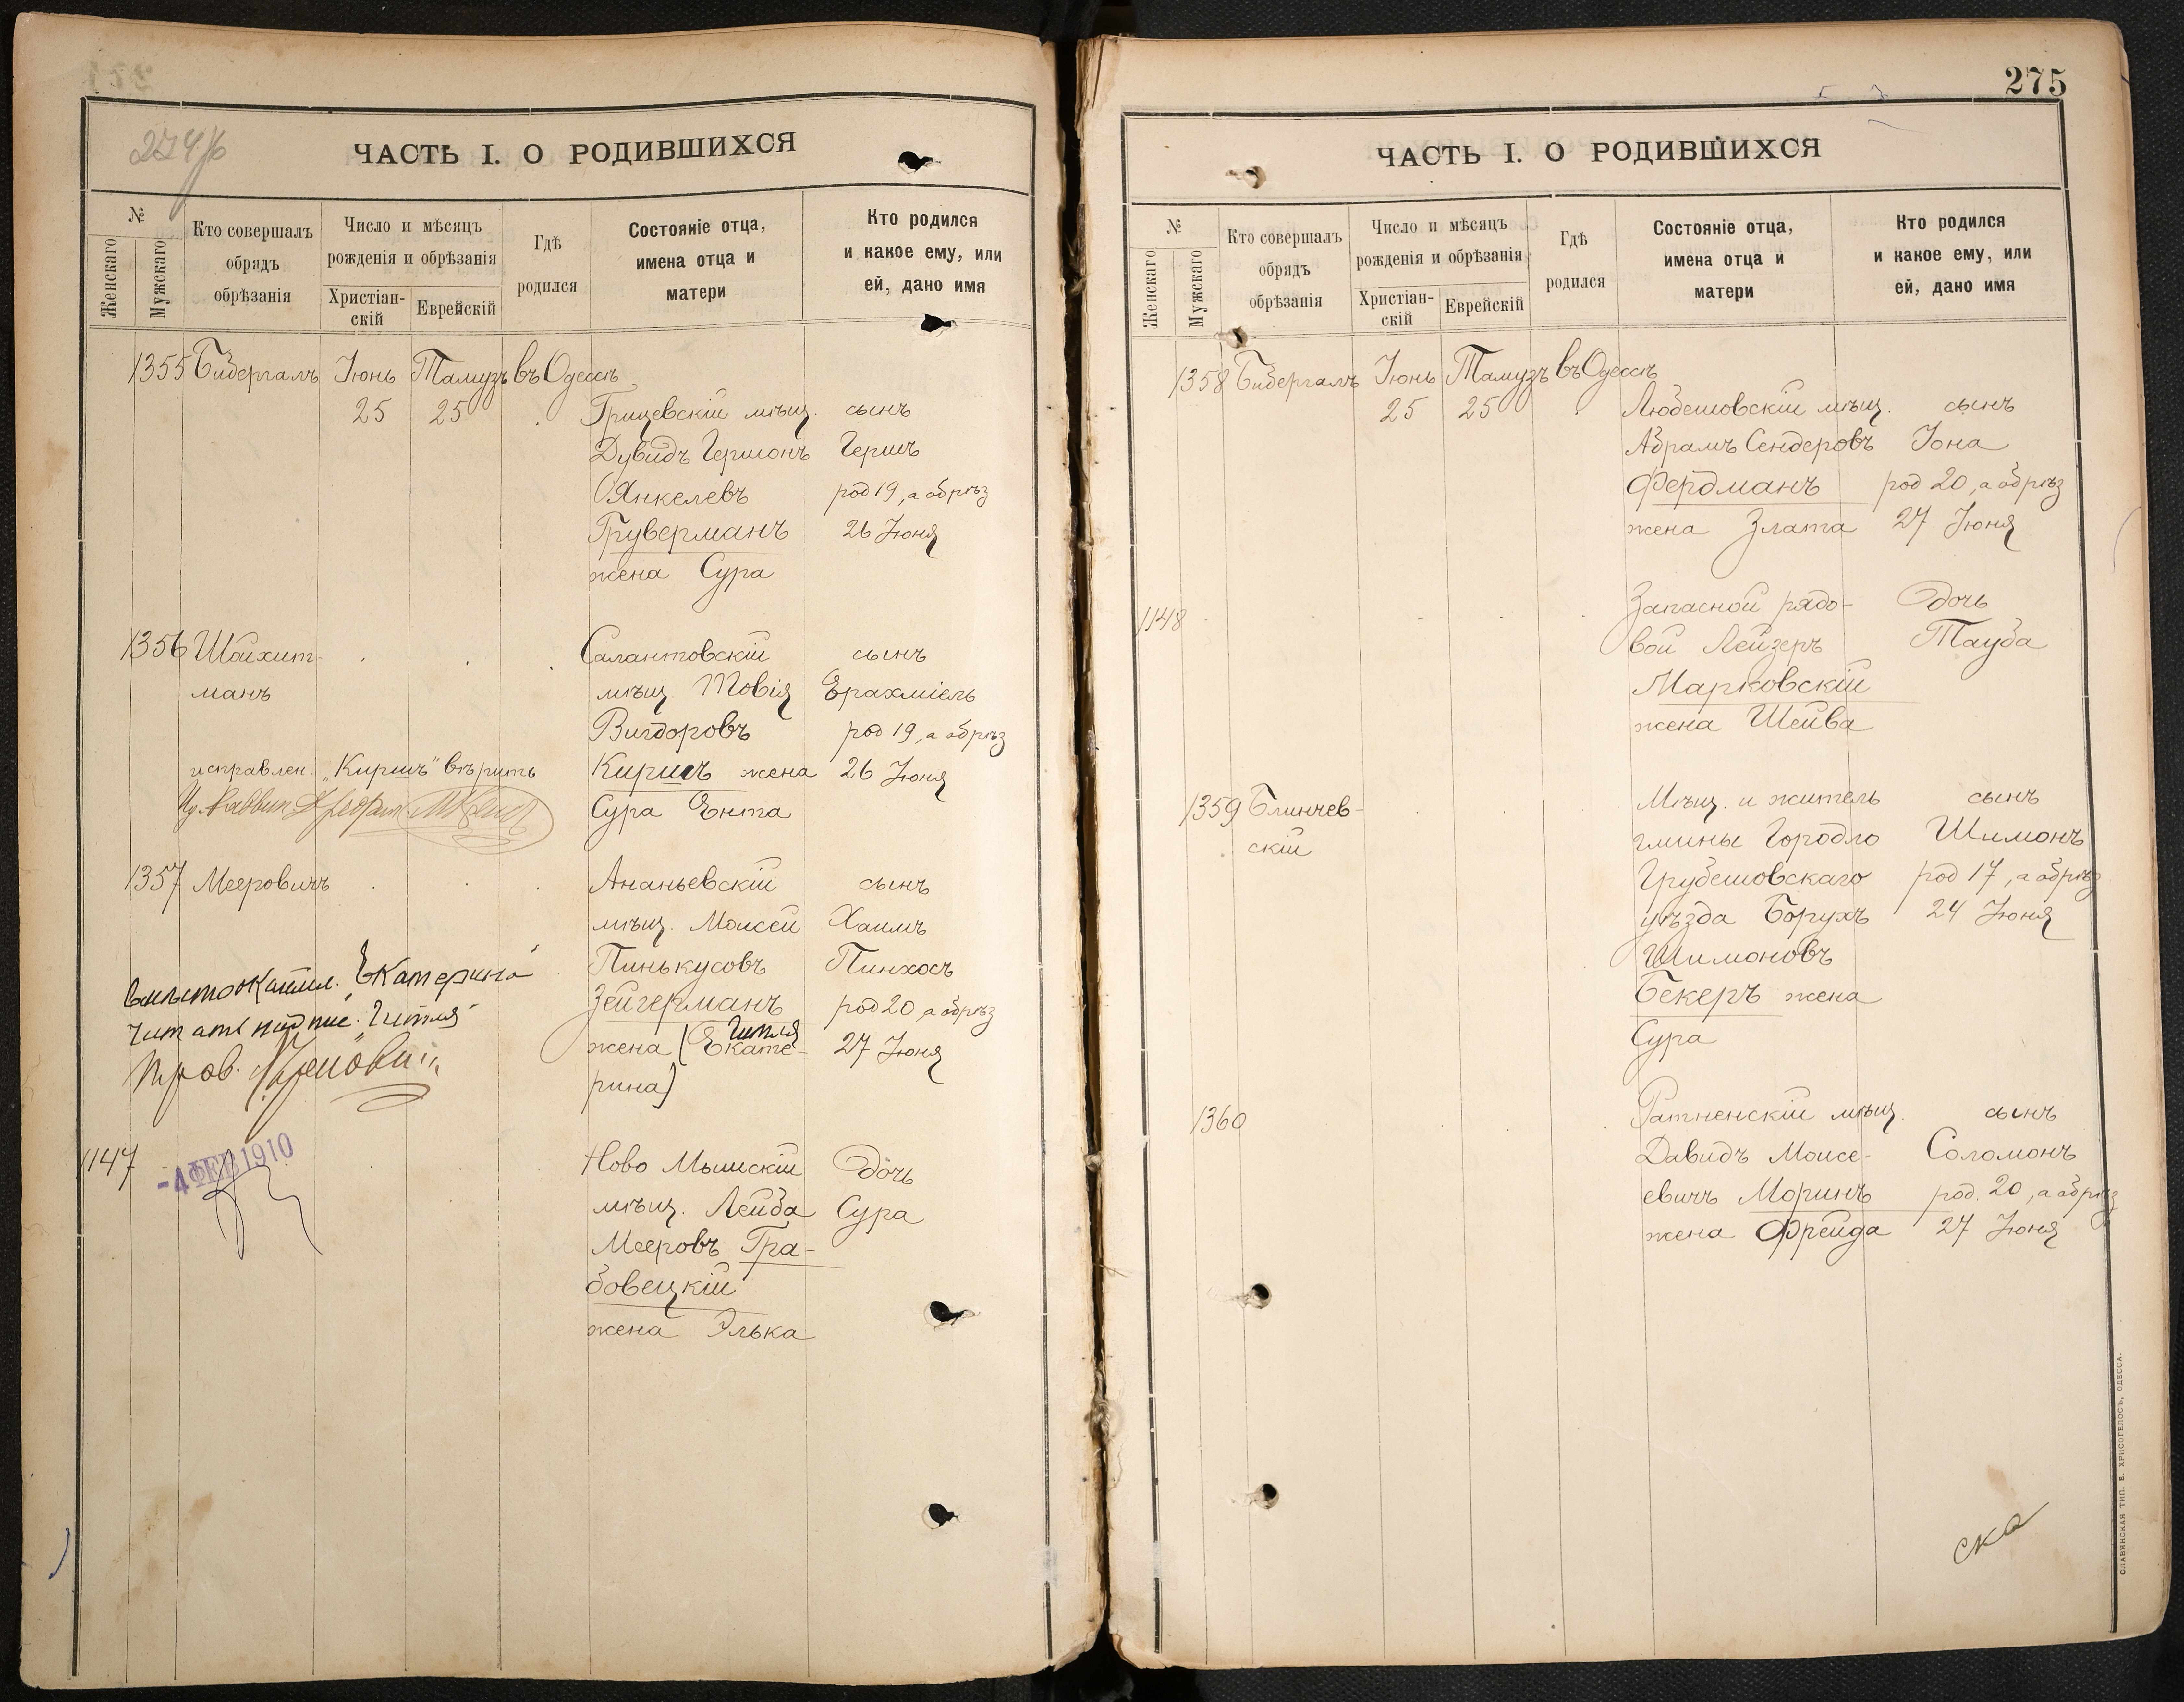 274/б
ЧАСТЬ I. О РОДИВШИХСЯ
№
Женскаго
Мужскаго
Кто совершалъ
обрядъ
обрѣзанія
Число и мѣсяцъ
рожденія и обрѣзанія
Христіан-
скій
Еврейскій
Гдѣ
родился
Состояніе отца,
имена отца и
матери
Кто родился
и какое ему, или
ей, дано имя
1355 Бибергалъ Іюнь Тамузъ въ Одессѣ
25 25 Грицевскій мѣщ. сынъ
Дувидъ Гершонъ Гершъ
Янкелевъ род 19, а обрѣз
Груверманъ 26 Іюня
жена Сура
1356 Шойхит- Салантовскій сынъ
манъ мѣщ. Товія Ерахміель
Вигдоровъ род 19, а обрѣз
исправлен. „Киршъ" вѣрить Киршъ жена 26 Іюня
Сура Ента
1357 Мееровичъ Ананьевскій сынъ
мѣщ. Моисей Хаимъ
Пинькусовъ Пинхосъ
вмѣсто Екатерина
Зейгерманъ род 20, а обрѣз
читать Гитля
Гитля
жена (Екате- 27 Іюня
рина)
1147 -4 ФЕВ 1910 Ново Мышскій дочь
мѣщ. Лейба Сура
Мееровъ Гра-
бовецкій
жена Элька
275
ЧАСТЬ I. О РОДИВШИХСЯ
№
Женскаго
Мужскаго
Кто совершалъ
обрядъ
обрѣзанія
Число и мѣсяцъ
рожденія и обрѣзанія
Христіан-
скій
Еврейскій
Гдѣ
родился
Состояніе отца,
имена отца и
матери
Кто родился
и какое ему, или
ей, дано имя
1358 Бибергалъ Іюнь Тамузъ въ Одессѣ
25 25 Любешовскій мѣщ. сынъ
Абрамъ Сендеровъ Іона
Фердманъ род 20, а обрѣз
жена Злата 27 Іюня
1148 Запасной рядо- дочь
вой Лейзеръ Тауба
Марковскій
жена Шейва
1359 Блинчев- Мѣщ. и житель сынъ
скій гмины Городло Шимонъ
Грубешовскаго род 17, а обрѣз
уѣзда Борухъ 24 Іюня
Шимоновъ
Бекеръ жена
Сура
1360 Ратненскій мѣщ. сынъ
Давидъ Моисе- Соломонъ
евичъ Моринъ род. 20, а обрѣз
жена Фрейда 27 Іюня
ска
СЛАВЯНСКАЯ ТИП. Е. ХРИСОГЕЛОСЪ, ОДЕССА.